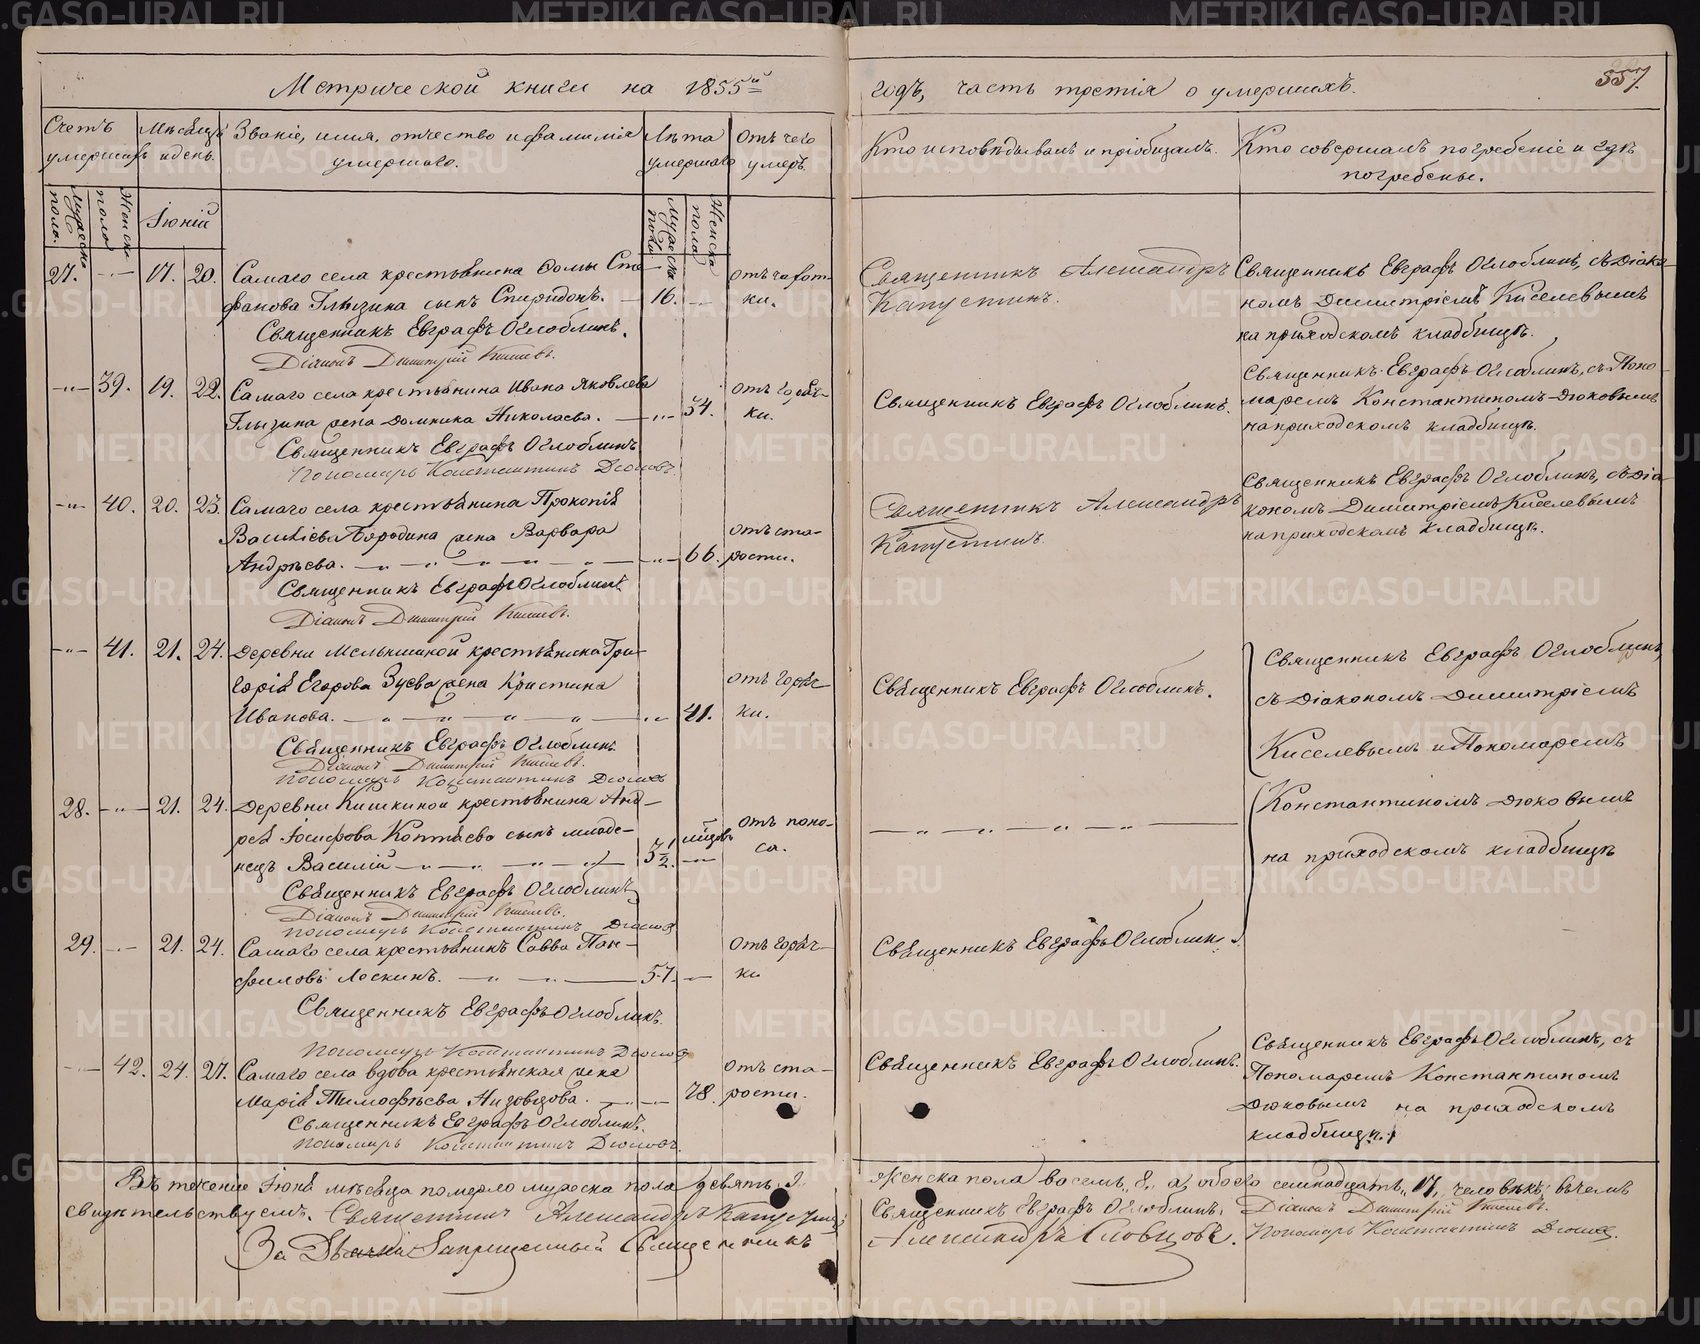 Метрической книги на 1855й
годъ, часть третія о умершихъ.
557
Счетъ умершихъ
Мѣсяцъ и день.
Званіе, имя, отчество и фамилія умершаго.
Лѣта умершаго
Отъ чего умеръ.
Кто исповѣдывалъ и пріобщалъ.
Кто совершалъ погребеніе и гдѣ погребены.
Мужеска пола.
Женска пола
Іюній
Мужеска пола
Женска пола
27. —"— 17. 20. Самаго села крестьянина Ѳомы Сте-
фанова Глызина сынъ Спиридонъ. — 16. —
отъ чахот-
ки.
Священникъ Александръ
Капустинъ.
Священникъ Евграфъ Оглоблинъ, съ Діако-
номъ Димитріемъ Киселевымъ
на приходскомъ кладбищѣ.
Священникъ Евграфъ Оглоблинъ.
Діаконъ Димитрій Киселевъ.
—"— 39. 19. 22. Самаго села крестьянина Ивана Яковлева
Глызина жена Домника Николаева. —"— 54.
отъ горяч-
ки.
Священникъ Евграфъ Оглоблинъ.
Священникъ Евграфъ Оглоблинъ, съ Поно-
маремъ Константиномъ Дюковымъ
на приходскомъ кладбищѣ.
Священникъ Евграфъ Оглоблинъ
Пономарь Константинъ Дюковъ
—"— 40. 20. 23. Самаго села крестьянина Прокопія
Василіева Бородина жена Варвара
Андреева. —"— 66.
отъ ста-
рости.
Священникъ Александръ
Капустинъ.
Священникъ Евграфъ Оглоблинъ, съ Діа-
кономъ Димитріемъ Киселевымъ
на приходскомъ кладбищѣ.
Священникъ Евграфъ Оглоблинъ.
Діаконъ Димитрій Киселевъ.
—"— 41. 21. 24. Деревни Мельничной крестьянина Гри-
горія Егорова Зуева жена Христина
Иванова. —"— 41.
отъ горяч-
ки.
Священникъ Евграфъ Оглоблинъ.
Священникъ Евграфъ Оглоблинъ,
съ Діакономъ Димитріемъ
Киселевымъ и Пономаремъ
Константиномъ Дюковымъ
на приходскомъ кладбищѣ
Священникъ Евграфъ Оглоблинъ
Діаконъ Димитрій Киселевъ.
Пономарь Константинъ Дюковъ
28. —"— 21. 24. Деревни Кишкиной крестьянина Анд-
рея Іосифова Коптяева сынъ младе-
нецъ Василій —"— 3 1/2. мѣсяцъ
отъ поно-
са.
Священникъ Евграфъ Оглоблинъ
Діаконъ Димитрій Киселевъ.
Пономарь Константинъ Дюковъ
29. —"— 21. 24. Самаго села крестьянинъ Савва Пан-
филовъ Лоскинъ. —"— 57. —
отъ горяч-
ки
Священникъ Евграфъ Оглоблинъ.
Священникъ Евграфъ Оглоблинъ.
Пономарь Константинъ Дюковъ
—"— 42. 24. 27. Самаго села вдова крестьянская жена
Марія Тимофѣева Низовцова. —"— 78.
отъ ста-
рости.
Священникъ Евграфъ Оглоблинъ.
Священникъ Евграфъ Оглоблинъ, съ
Пономаремъ Константиномъ
Дюковымъ на приходскомъ
кладбищѣ.
Священникъ Евграфъ Оглоблинъ.
Пономарь Константинъ Дюковъ.
Въ теченіе Іюня мѣсяца померло мужеска пола девять, 9.
женска пола восемь, 8, а обоего семнадцать, 17, человѣкъ; въ чемъ
свидѣтельствуемъ. Священникъ Александръ Капустинъ
Священникъ Евграфъ Оглоблинъ. Діаконъ Димитрій Киселевъ.
За Дьячка Запрещенный Священникъ
Александръ Словцовъ. Пономарь Константинъ Дюковъ.
METRIKI.GASO-URAL.RU